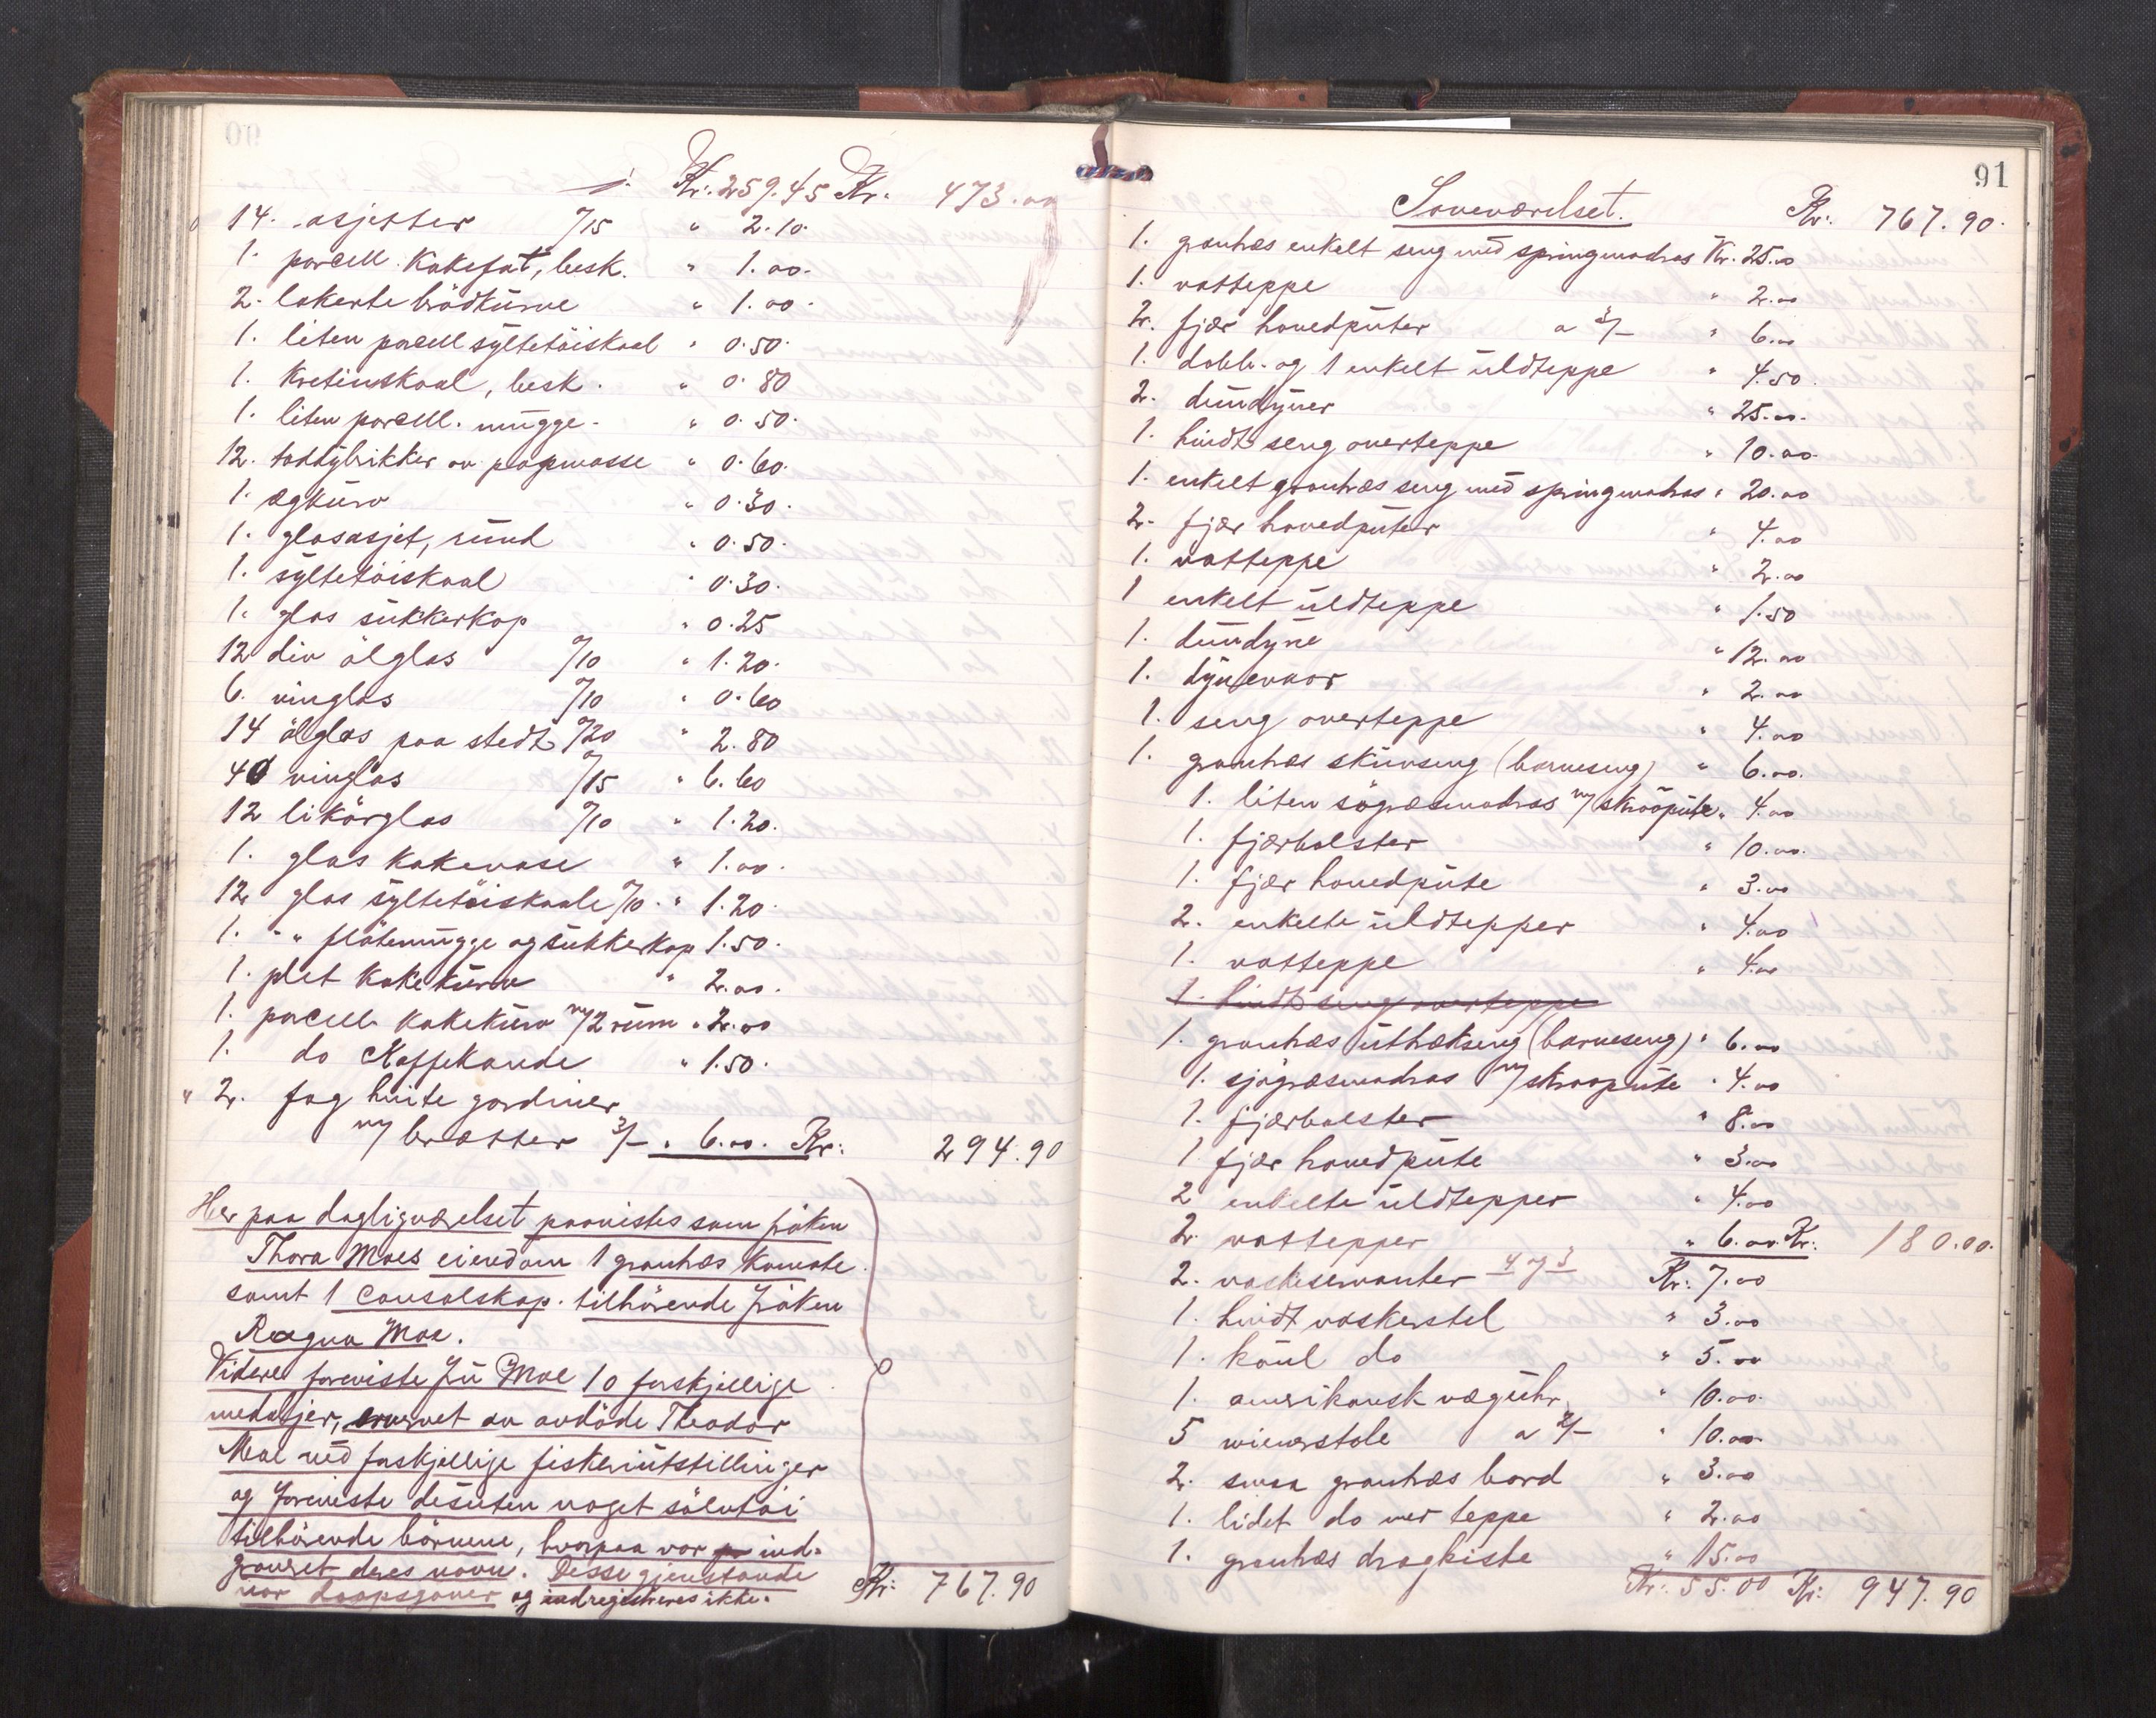 Kr. 259.45 Kr. 473.00
14. asjetter a/15 " 2.10.
1. porcell. Kakefat, besk. " 1.00.
2. lakerte brödkurve " 1.00.
1. liten porcell syltetöiskaal " 0.50.
1. Kretinskaal, besk. " 0.80
1. liten porcell. mugge. " 0.50.
12. toddybrikker av papmasse " 0.60.
1. ægkurv " 0.30.
1. glasasjet, rund " 0.50.
1. syltetöiskaal " 0.30.
1. glas sukkerkop " 0.25
12 div ölglas a/10 " 1.20.
6. vinglas a/10 " 0.60
14 ölglas paa stedt a/20 " 2.80
40 vinglas a/15 " 6.60
12 likörglas a/10 " 1.20.
1. glas kakevase " 1.00.
12 glas syltetöiskaale a/10. " 1.20
1. " flötemugge og sukkerkop 1.50.
1. plet kakekurv " 2.00.
1. porcell. kakekurv m/2 rum " 2.00
1. do Kaffekande " 1.50.
" 2. fag hvite gardiner
m/ brætter 3/- " 6.00. Kr: 294.90
Her paa dagligværelset paavistes som fröken
Thora Moes eiendom 1 grantræs komode
samt 1 consolskap. tilhörende fröken
Ragna Moe.
Videre foreviste fru Moe 10 forskjellige
medaljer, ervervet av avdöde Theodor
Moe ved forskjellige fiskeriutstillinger
og foreviste desuten noget sölvtöi
tilhörende börnene, hvorpaa var ind-
gravert deres navn. Disse gjenstande
var daapsgaver og indregistreres ikke. Kr: 767.90
91
Soveværelset. Kr: 767.90.
1. grantræs enkelt seng med springmadras Kr. 25.00
1. vatteppe " 2.00
2. fjær hovedputer a 3/- " 6.00
1. dobb. og 1 enkelt uldteppe " 4.50.
2. dundyner " 25.00.
1. hvidt seng overteppe " 10.00.
1. enkelt grantræs seng med springmadras " 20.00
2. fjær hovedputer " 4.00
1. vatteppe " 2.00
1 enkelt uldteppe " 1.50
1. dundyne " 12.00
1. dynevaar " 2.00
1. seng overteppe " 4.00
1. grantræs skuvseng (barneseng) " 6.00.
1. liten sögræsmadras m/ skraapute " 4.00
1. fjærbolster " 10.00.
1. fjær hovedpute " 3.00
2. enkelte uldtepper " 4.00
1. vatteppe " 4.00
1. hvidt seng overteppe
1. grantræs uttrækseng (barneseng) " 6.00
1. sjögræsmadras m/ skraapute " 4.00
1. fjærbolster " 8.00
1 fjær hovedpute " 3.00
2 enkelte uldtepper " 4.00
2. vattepper " 6.00 Kr: 180.00.
2. vaskeservanter 4 og 3 Kr: 7.00
1. hvidt vaskerstel " 3.00
1. koul do " 5.00
1. amerikansk væguhr " 10.00.
5 wienerstole a 2/- " 10.00
2. smaa grantræs bord " 3.00
1. lidet do med teppe " 2.00
1. grantræs dragkiste " 15.00
Kr: 55.00 Kr: 947.90